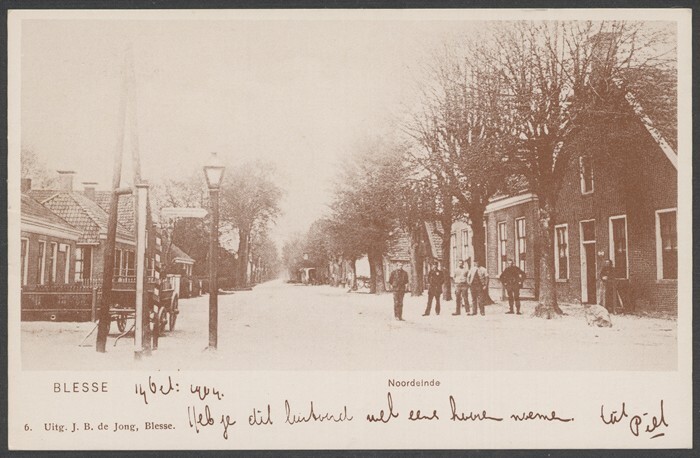 Noordeinde
BLESSE 14 Oct: 1904.
Heb je dit buitoord wel eens hooren noemen.
6. Uitg. J. B. de Jong, Blesse.
Piet